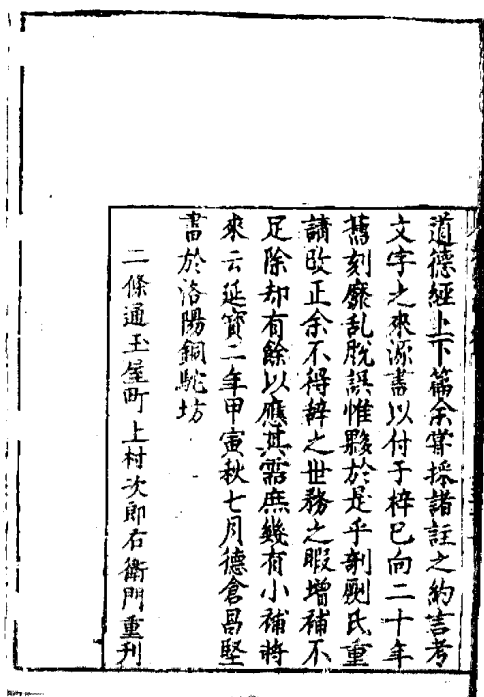 道德經上下篇余嘗採諸註之約言考
文字之來源書以付于梓已向二十年
舊刻靡乱脫誤惟夥於是乎剞劂氏重
請改正余不得辞之世務之暇增補不
足除却有餘以應其需庶幾有小補將
來云延寶二年甲寅秋七月德倉昌堅
書於洛陽銅駝坊
二條通玉屋町上村次郎右衛門重刊